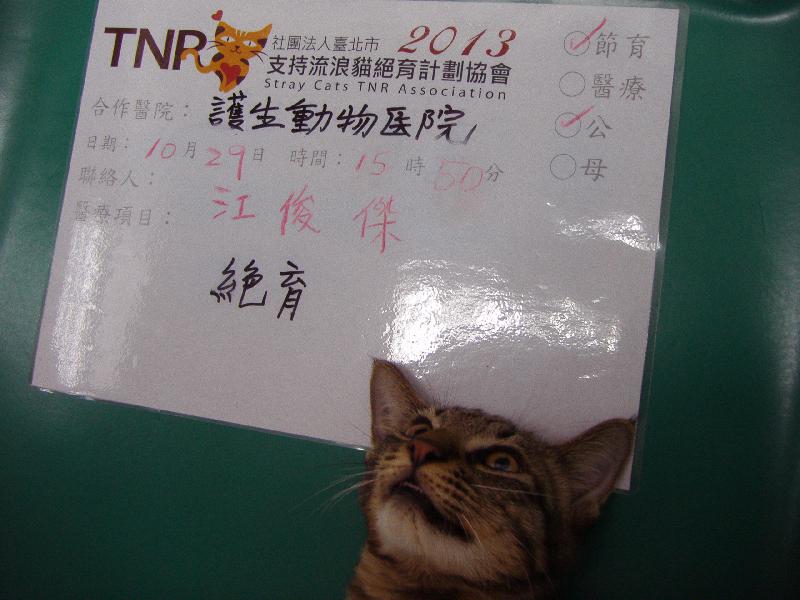 TNR 社團法人臺北市 2013
支持流浪貓絕育計劃協會
Stray Cats TNR Association
合作醫院： 護生動物医院
日期： 10月29日 時間： 15時50分
聯絡人： 江俊傑
醫療項目：
絕育
節育
醫療
公
母